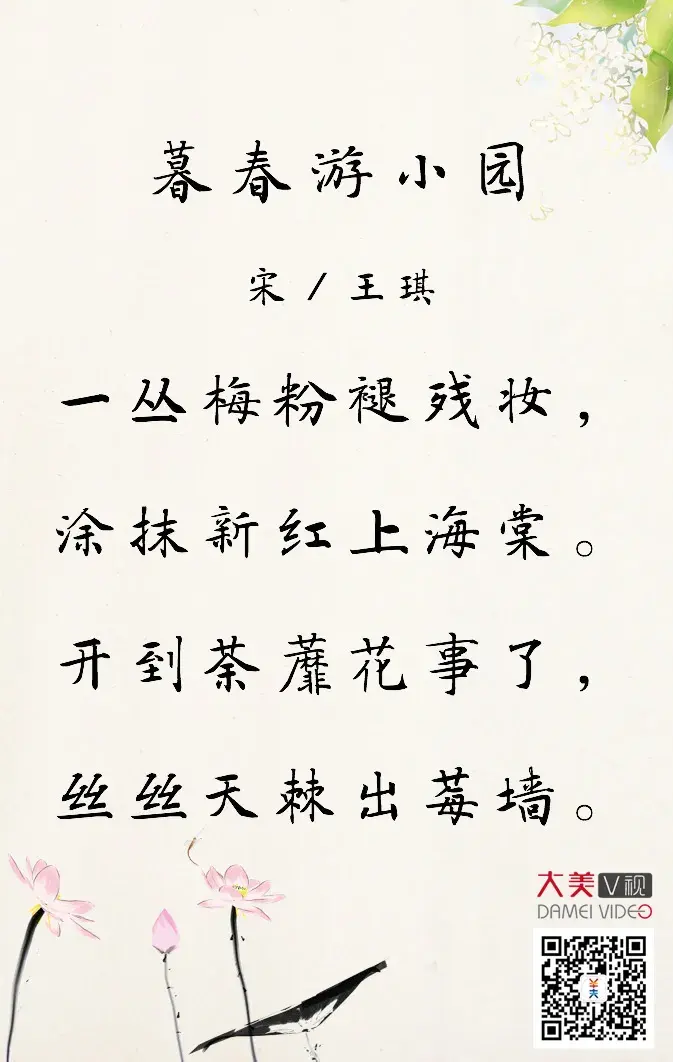 暮春游小园
宋/王琪
一丛梅粉褪残妆，
涂抹新红上海棠。
开到荼蘼花事了，
丝丝天棘出莓墙。
大美V视
DAMEI VIDEO